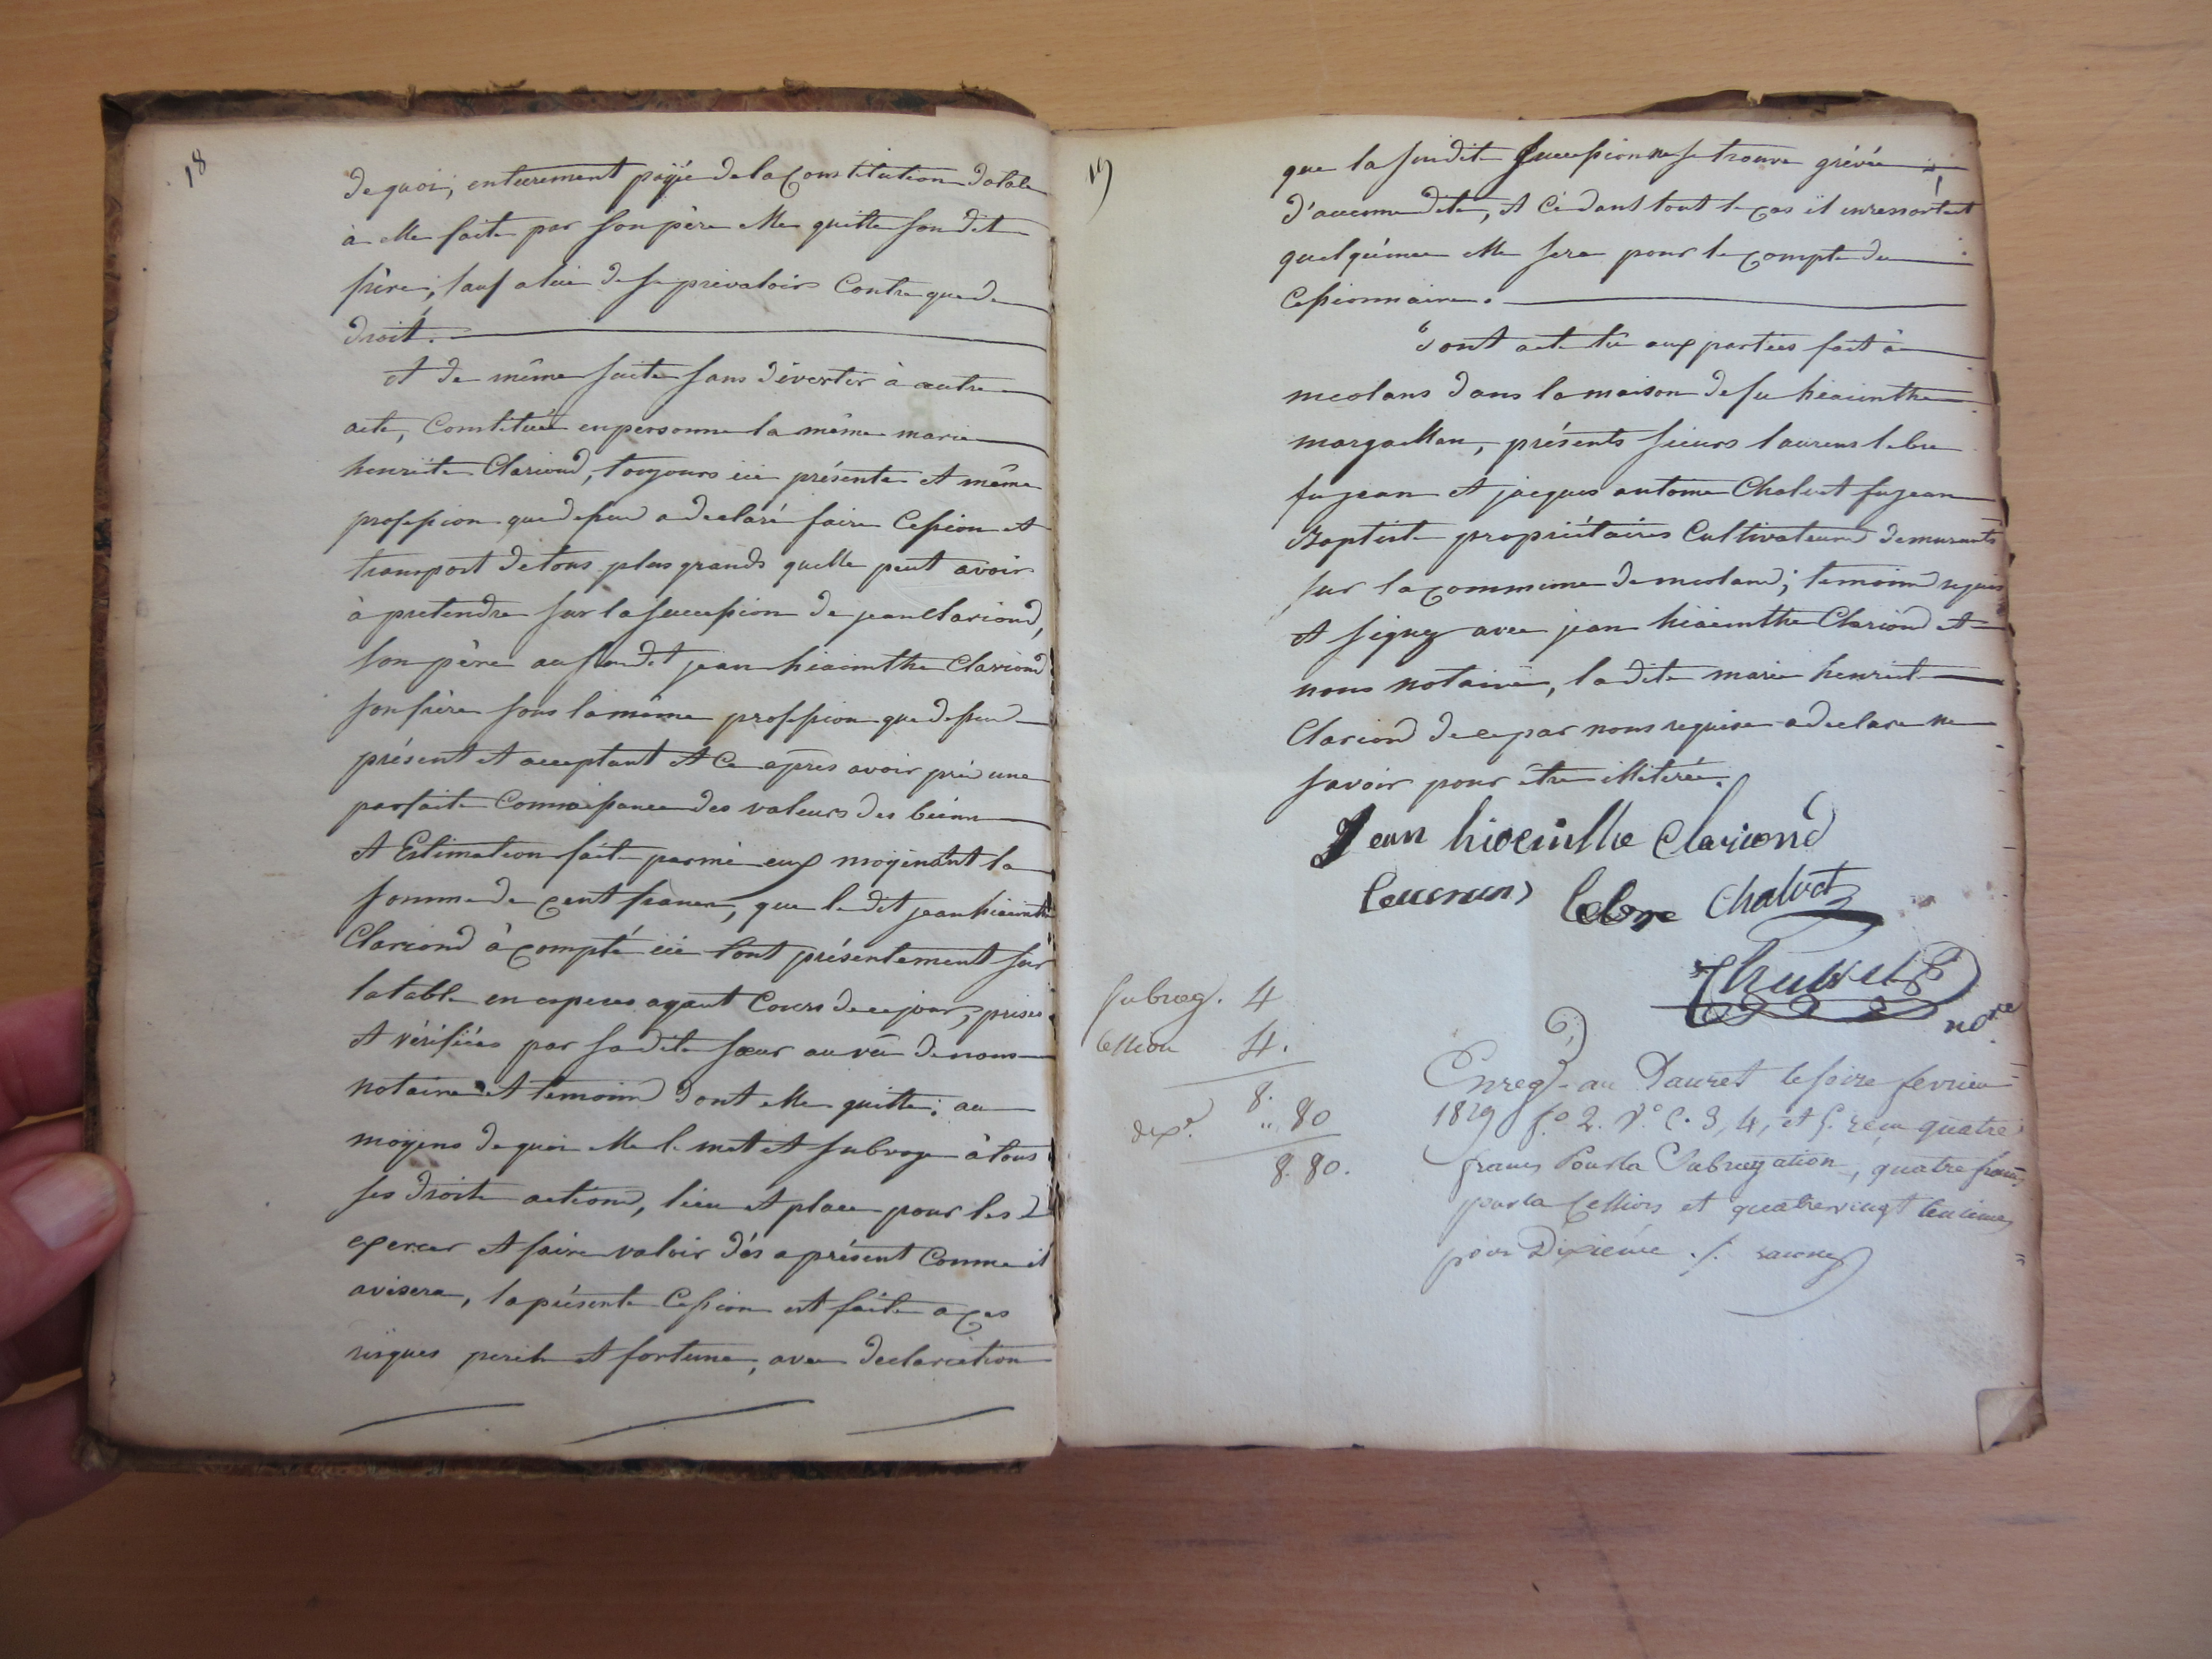 18
de quoi, entierement payée de la Constitution dotale
à elle faite par son père elle quitte son dit
frère, sauf a lui de se prevaloir Contre que de
droit.
et de même suite sans divertir à autre
acte, Constituée en personne la même marie
henriette Clariond, toujours ici présente et même
profession que dessus a declaré faire Cession et
transport de tous plus grands quelle peut avoir
à pretendre sur la succession de jean Clariond,
son père au susdit jean hiacinthe Clariond
son frère sous la même profession que dessus
présent et acceptant et Ce après avoir pris une
parfaite Connaissance des valeurs des biens
et Estimation faite parmi eux moyenant la
somme de Cent francs, que le dit jean hiacinthe
Clariond à compté ici tout présentement sur
la table en especes ayant Cours de ce jour, prises
et vérifiées par sa dite sœur au vû de nous
notaire et temoins dont elle quitte; au
moyens de quoi elle le met et subroge à tous
ses droits actions, lieu et place pour les
exercer et faire valoir dés a présent Comme il
avisera, la présente Cession est faite a ces
risques perils et fortune, avec declaration
19
que la susdite succession ne se trouve grévée
d'aucune dete, et Cédant tout le cas il en ressortait
quelqu'une elle sera pour le compte du
Cessionnaire.
dont acte lu aux parties fait à
meolans dans la maison de fu hiacinthe
margaillan, présents sieurs laurens lebre
fu jean et jacques antoine Chalvet fu jean
Baptiste propriétaires Cultivateurs demurants
sur la commune de meolans; temoins requis
et signez avec jean hiacinthe Clariond et
nous notaire, la dite marie henriete
Clariond de ce par nous requise a declaré ne
savoir pour être illiterée.
Jean hiacinthe Clariond
laurens lebre Chalvet
nore
subrog. 4
Cession 4.
8.
dixe. " 80
8. 80.
Enregé au Lauzet le seize fevrier
1829 fo. 2. Vo. C. 3, 4, et 5. reçu quatre
francs Pour la Subrogation, quatre francs
pour la Cession et quatre vingt Centimes
pour Dixieme.